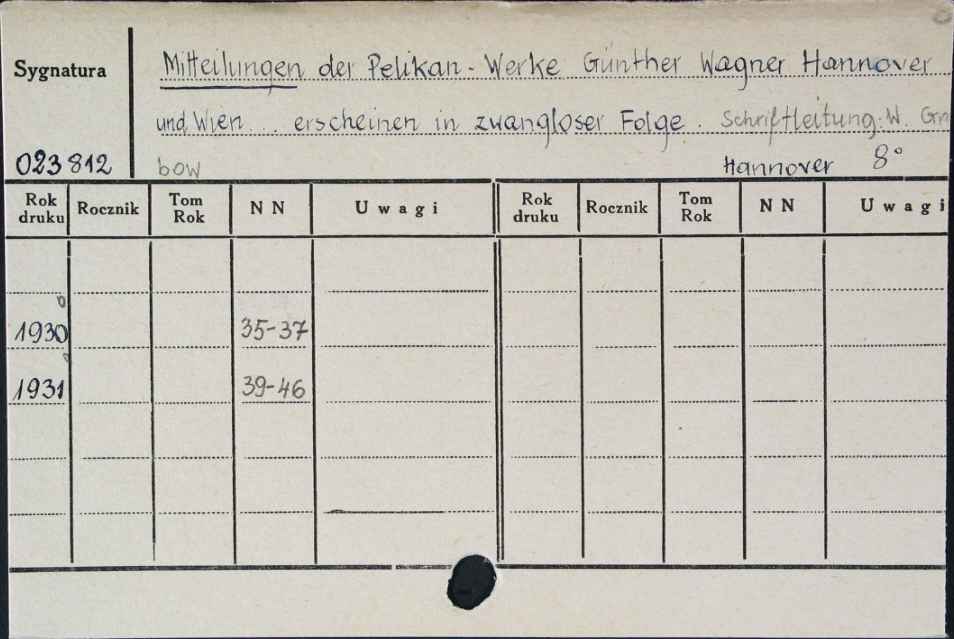 Sygnatura
Mitteilungen der Pelikan-Werke Günther Wagner Hannover
und Wien... erscheinen in zwangloser Folge. Schriftleitung: W.
023812 bow Hannover 8°
Rok druku Rocznik Tom Rok NN Uwagi Rok druku Rocznik Tom Rok NN Uwagi
1930 35-37
1931 39-46